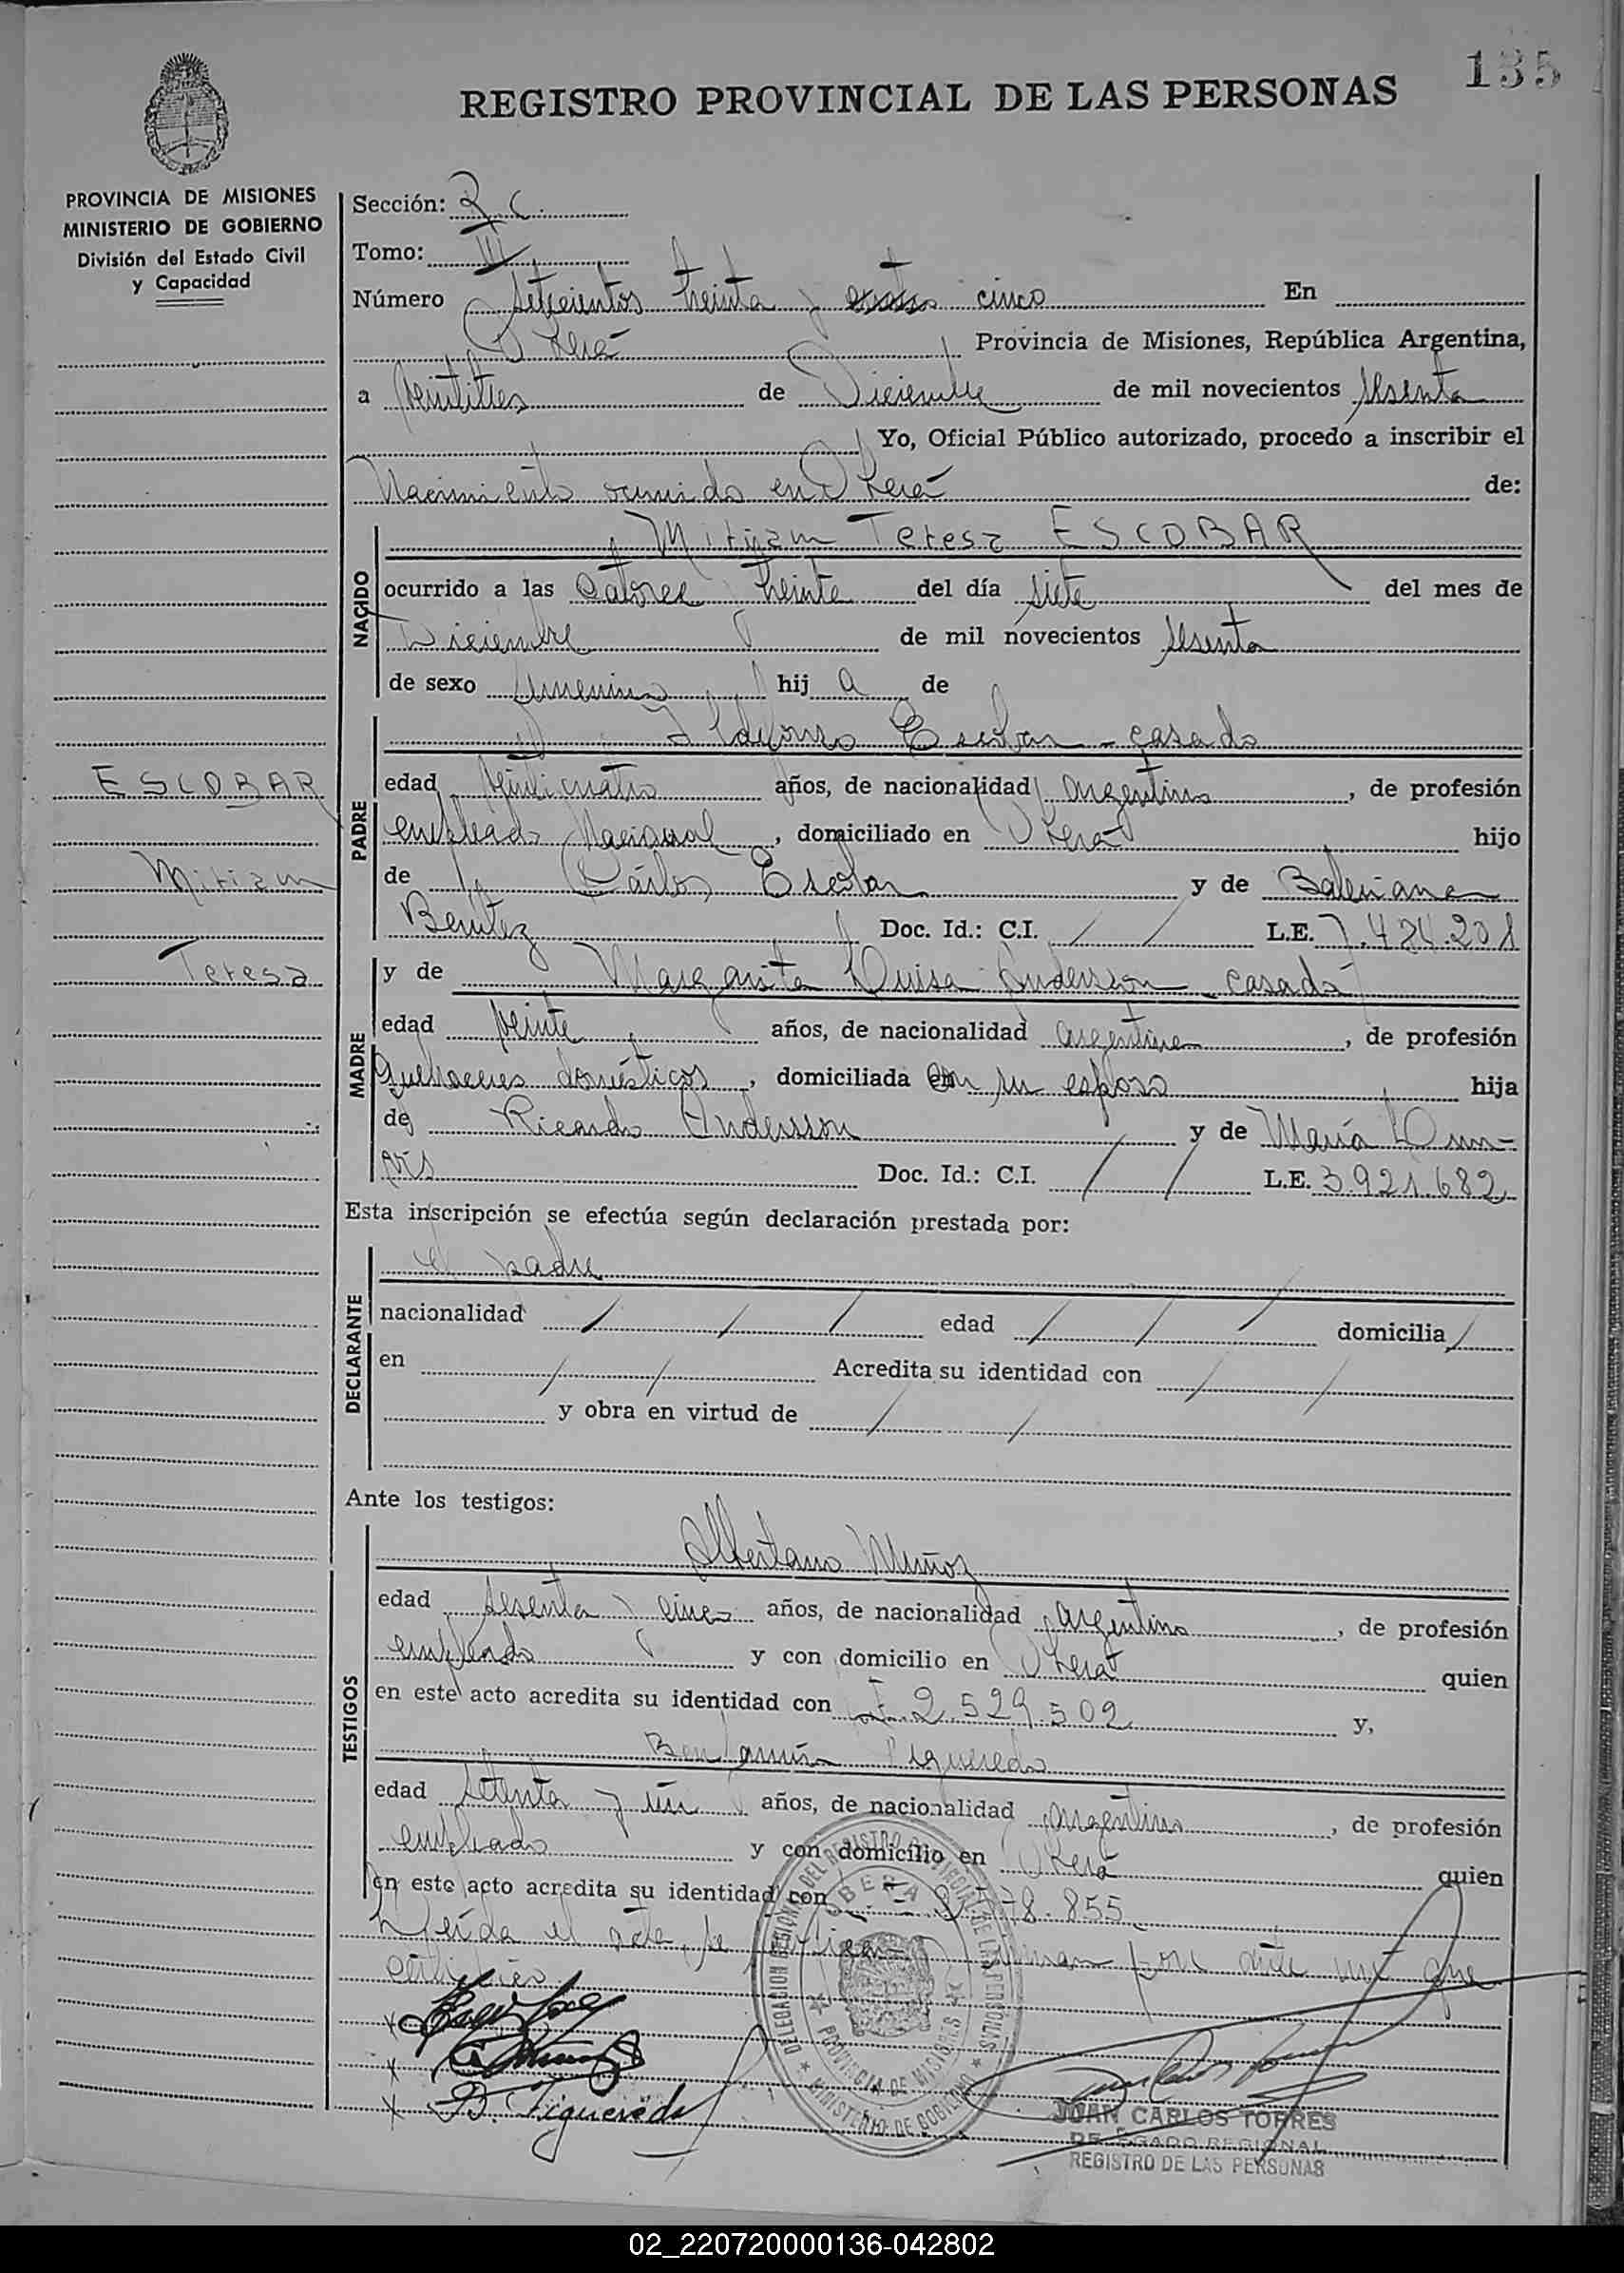 135
REGISTRO PROVINCIAL DE LAS PERSONAS
PROVINCIA DE MISIONES
MINISTERIO DE GOBIERNO
División del Estado Civil
y Capacidad
Sección:
Tomo: III
Número Setecientos treinta y cinco En
Oberá Provincia de Misiones, República Argentina,
a veintitres de Diciembre de mil novecientos sesenta
Yo, Oficial Público autorizado, procedo a inscribir el
Nacimiento ocurrido en Oberá de:
NACIDO
Miriam Teresa ESCOBAR
ocurrido a las Catorce treinta del día siete del mes de
Diciembre de mil novecientos sesenta
de sexo femenino hij a de
PADRE
Ildefonso Escobar - casado
edad veinticuatro años, de nacionalidad argentino, de profesión
empleado Nacional, domiciliado en Oberá hijo
de Carlos Escobar y de Baleriana
Benitez Doc. Id.: C.I. / / L.E. 7.484.201
ESCOBAR
Miriam
Teresa
MADRE
y de Margarita Luisa Andersson - casada
edad veinte años, de nacionalidad argentina, de profesión
Quehaceres domésticos, domiciliada con su esposo hija
de Ricardo Andersson y de María
Doc. Id.: C.I. / / L.E. 3.921.682
Esta inscripción se efectúa según declaración prestada por:
DECLARANTE
el padre
nacionalidad / / / edad / / / domicilia /
en / / Acredita su identidad con / /
y obra en virtud de / /
Ante los testigos:
TESTIGOS
Albertano Muñoz
edad sesenta y cinco años, de nacionalidad argentino, de profesión
empleado y con domicilio en Oberá quien
en este acto acredita su identidad con 2.529.502 y,
Benjamín Figueredo
edad setenta y un años, de nacionalidad argentino, de profesión
empleado y con domicilio en Oberá quien
en este acto acredita su identidad con 78.855
Leida el acta, se ratifican firman por ante mí que
certifico
DELEGACION REGIONAL DEL REGISTRO PROVINCIAL DE LAS PERSONAS
OBERA
PROVINCIA DE MISIONES
MINISTERIO DE GOBIERNO
B. Figueredo
JUAN CARLOS TORRES
DELEGADO REGIONAL
REGISTRO DE LAS PERSONAS
02_220720000136-042802